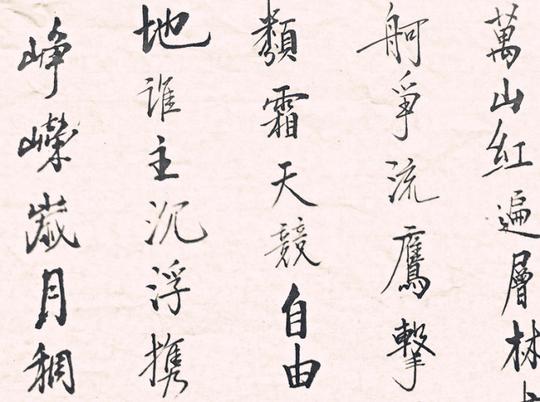 萬山紅遍層林
舸爭流鷹擊
類霜天競自由
地誰主沉浮携
崢嶸歲月稠